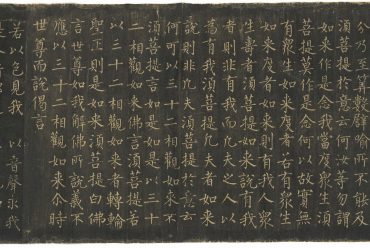 分乃至筭數譬喻所不能及
須菩提於意云何汝等勿謂
如來作是念我當度衆生須
菩提莫作是念何以故實無
有衆生如來度者若有衆生
如來度者如來則有我人衆
生壽者須菩提如來說有我
者則非有我而凡夫之人以
為有我須菩提凡夫者如來
說則非凡夫須菩提於意云
何可以三十二相觀如來不
須菩提言如是如是以三十
二相觀如來佛言須菩提若
以三十二相觀如來者轉輪
聖王則是如來須菩提白佛
言世尊如我解佛所說義不
應以三十二相觀如來尒時
世尊而說偈言
若以色見我 以音聲求我